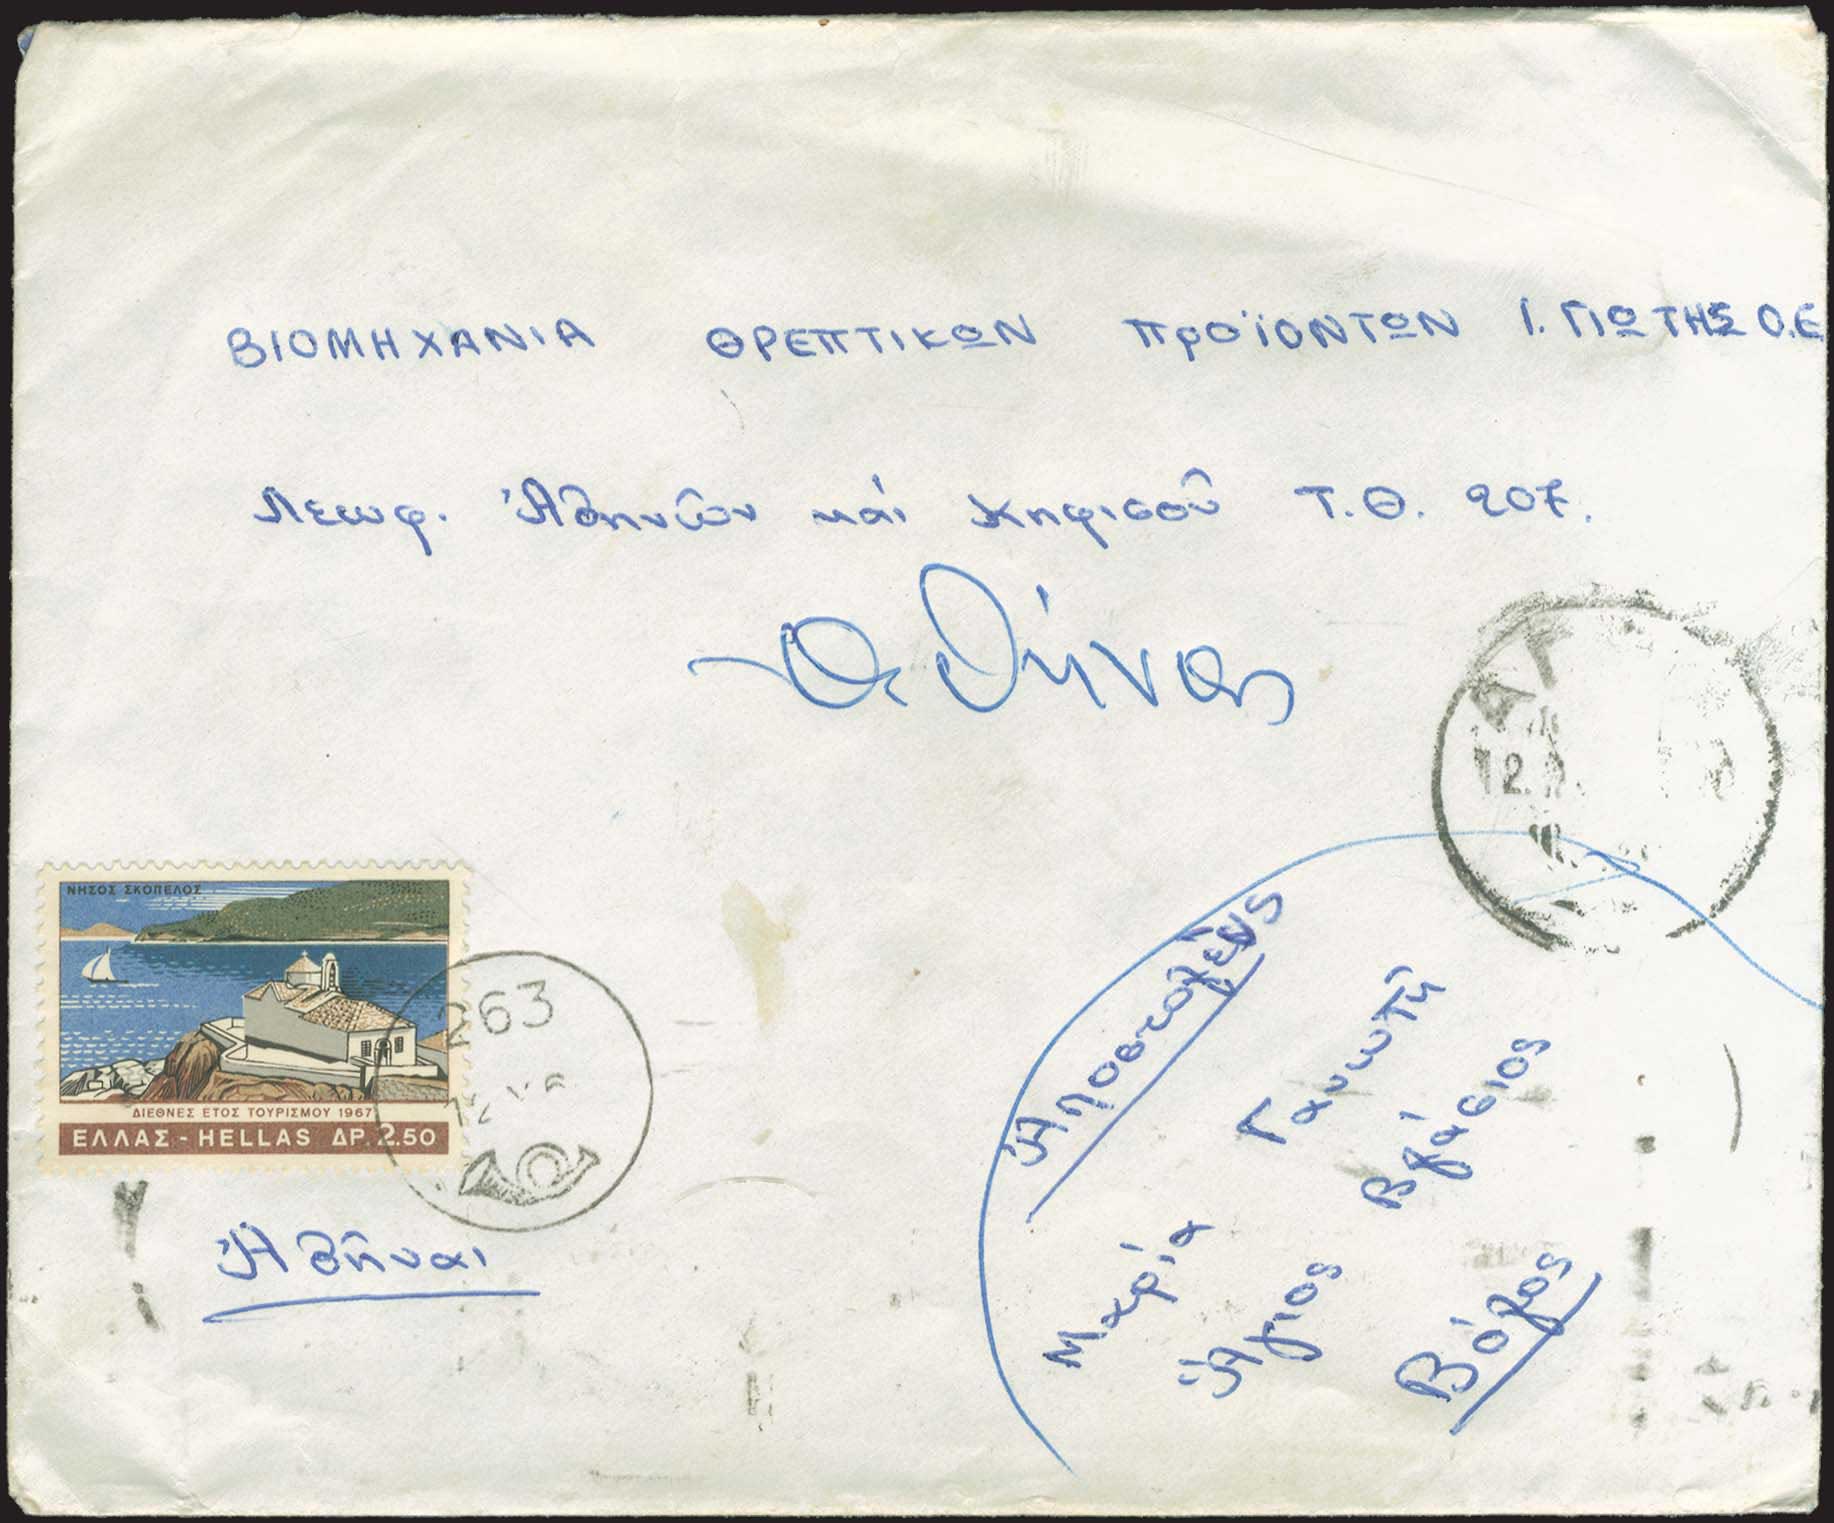 ΒΙΟΜΗΧΑΝΙΑ ΘΡΕΠΤΙΚΩΝ ΠροϊΟΝΤΩΝ Ι. ΓΙΩΤΗΣ Ο.Ε
Λεωφ. Ἀθηνῶν καί Κηφισοῦ Τ.Θ. 207.
Αθήνας
ΝΗΣΟΣ ΣΚΟΠΕΛΟΣ
ΔΙΕΘΝΕΣ ΕΤΟΣ ΤΟΥΡΙΣΜΟΥ 1967
ΕΛΛΑΣ - HELLAS ΔΡ. 2.50
263
12
Ἀθῆναι
Ἀποστολέυς
Μαρία Γανωτῆ
Ἅγιος Βλάσιος
Βόλος